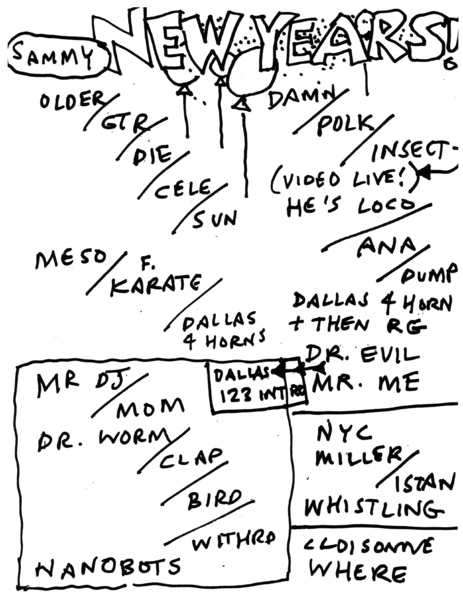 SAMMY NEW YEARS!
OLDER/
GTR/
DIE/
CELE/
SUN
MESO/ F.
KARATE/
DALLAS
4 HORNS
DAMN/
POLK/
INSECT-
(VIDEO LIVE!)
HE'S LOCO/
ANA/
DUMP
DALLAS 4 HORN
+ THEN RG
DR. EVIL
MR. ME
MR DJ/
MOM
DR. WORM/
CLAP/
BIRD/
WITHRD
NANOBOTS
DALLAS
123 INT RO
NYC
MILLER/
ISTAN
WHISTLING
CLOISONNE
WHERE